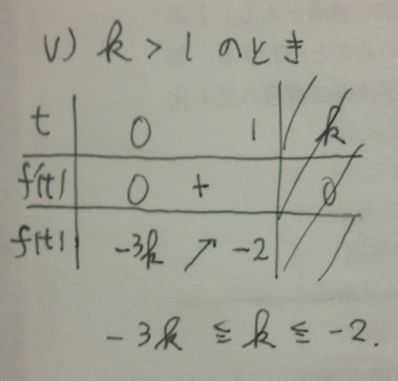 v) k > 1 のとき
t 0 1 k
f'(t) 0 + 0
f(t) -3k ↗ -2
-3k ≦ k ≦ -2.